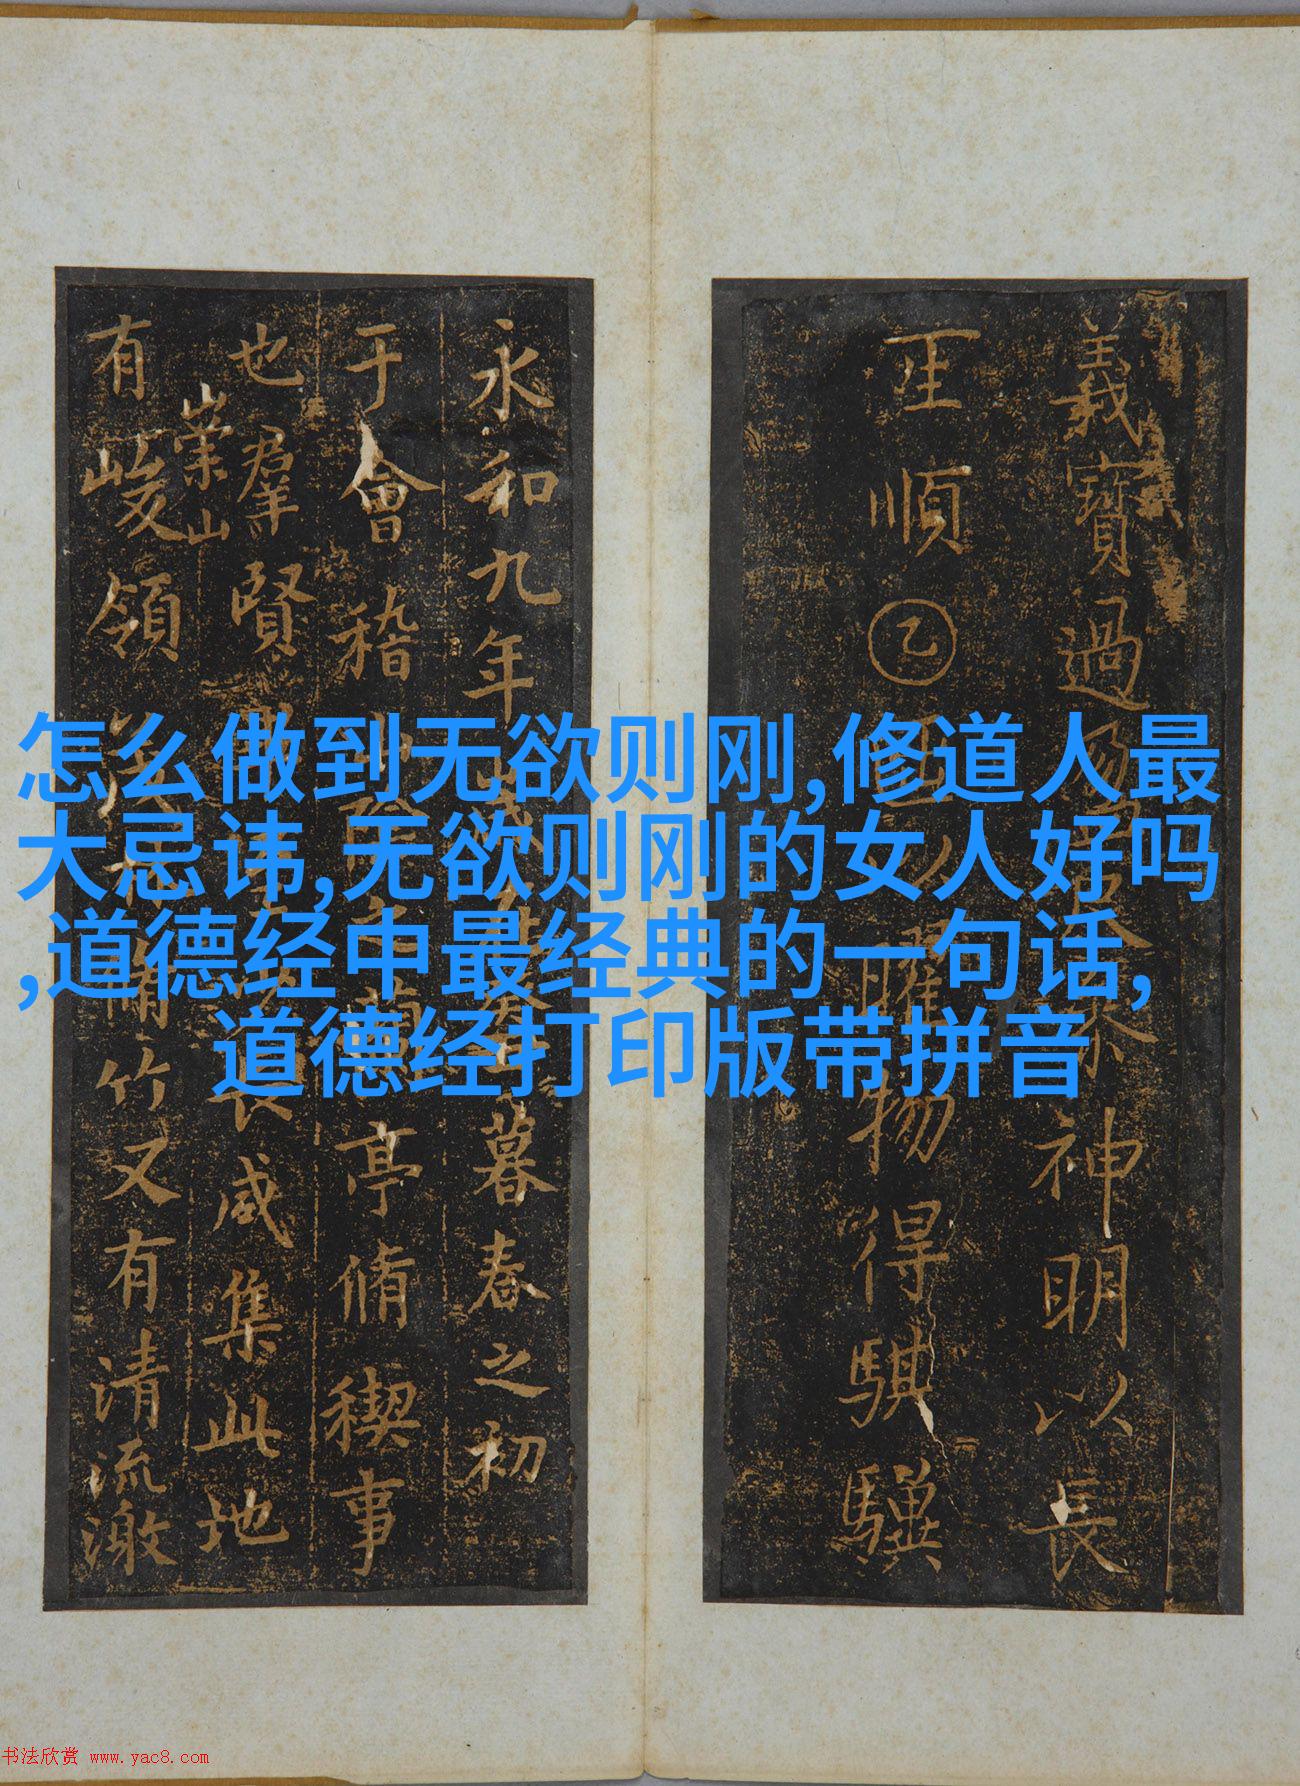 怎么做到无欲则刚,修道人最
大忌讳,无欲则刚的女人好吗
,道德经中最经典的一句话,
道德经打印版带拼音
義寶過
神明以長
王順乙
物得騏驥
永和九年
暮春之初
于會稽
亭脩稧事
也群賢
長咸集此地
崇山
有峻領
竹又有清流激
书法欣赏 www.yac8.com